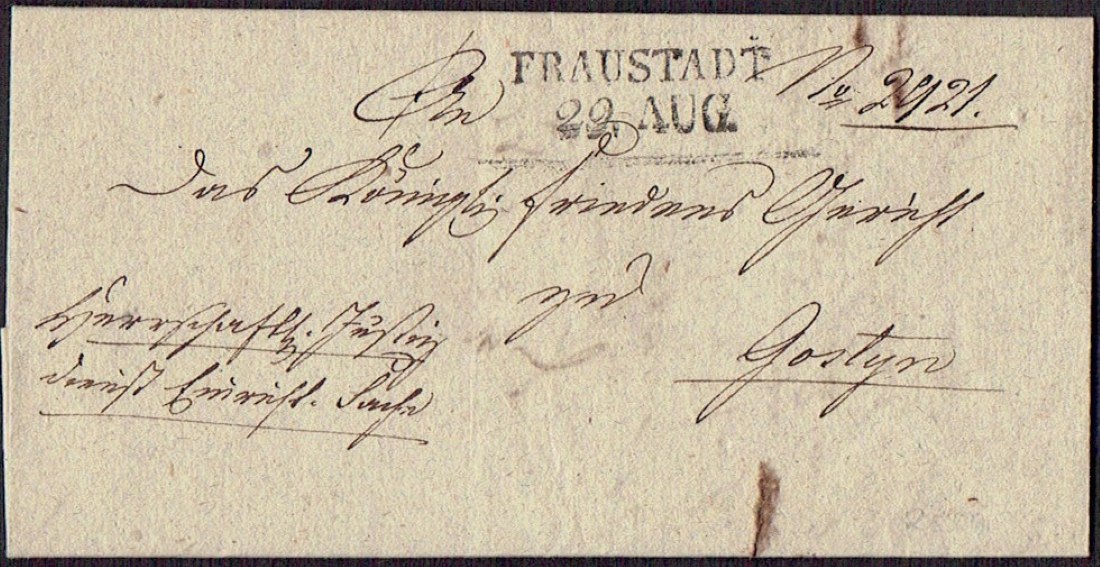 FRAUSTADT
22. AUG.
An
No 2921.
Das Königl. Friedens Gericht
zu
Gostyn
Herrschaftl. Justiz
dienst Sache